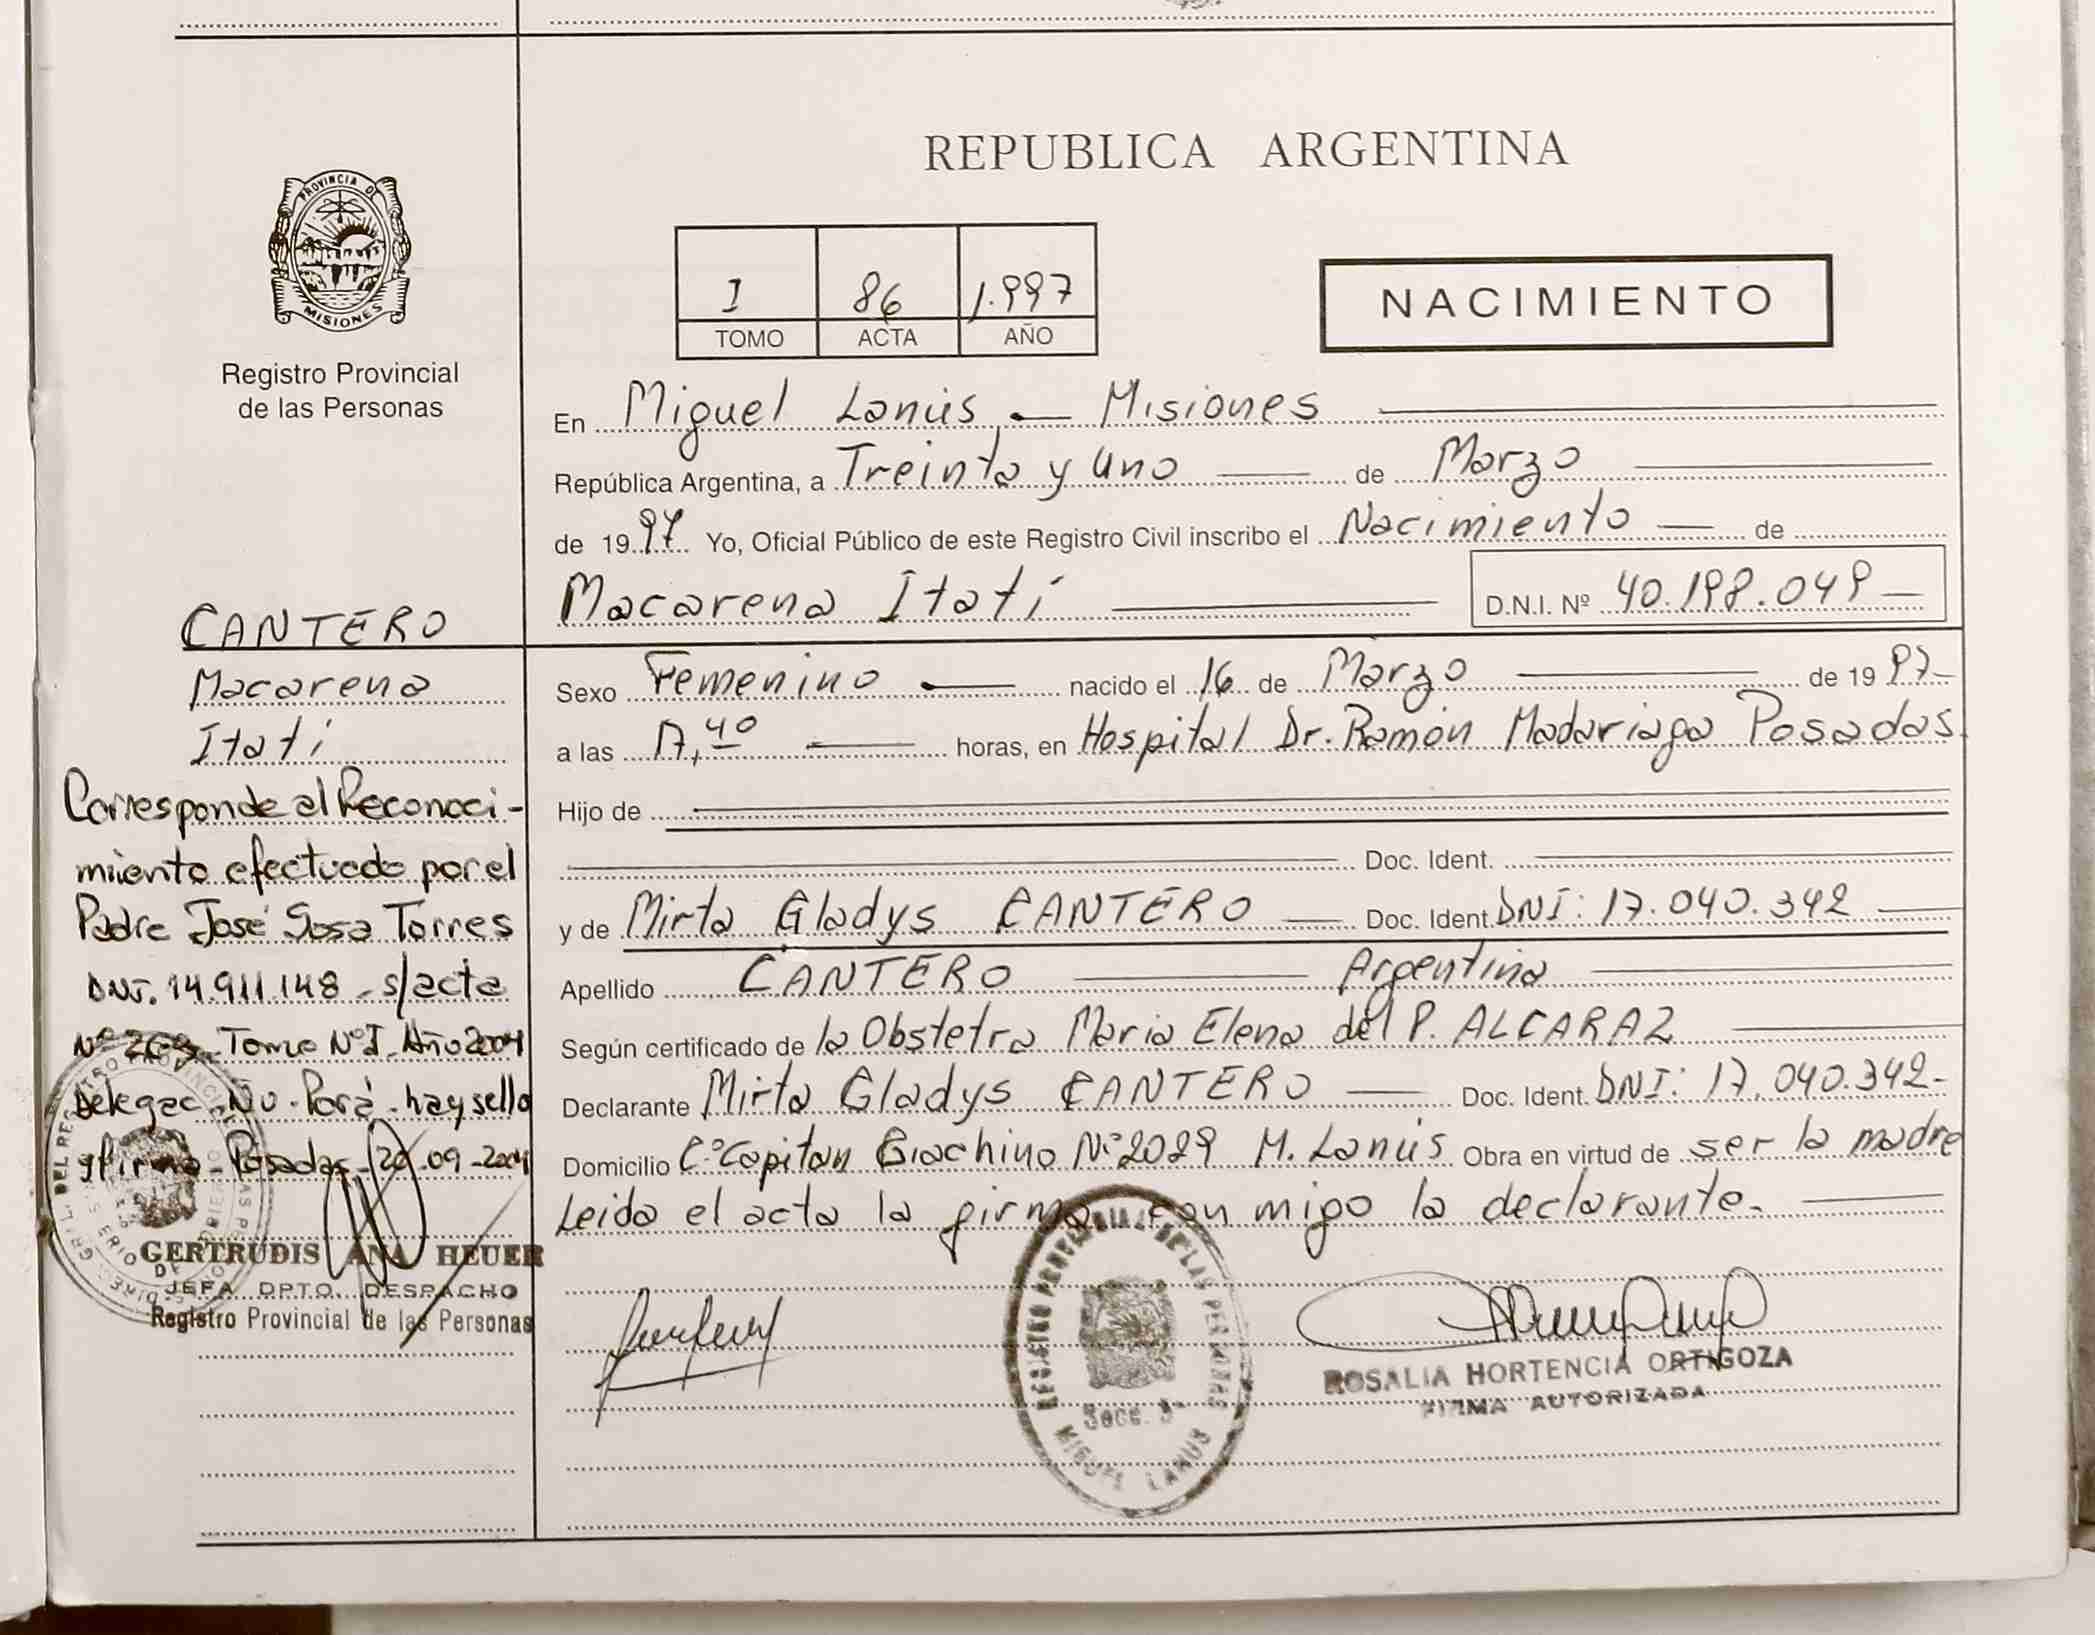 REPUBLICA ARGENTINA
PROVINCIA DE
MISIONES
Registro Provincial
de las Personas
I 86 1.997
TOMO ACTA AÑO
NACIMIENTO
En Miguel Lanús - Misiones
República Argentina, a Treinta y Uno de Marzo
de 1997 Yo, Oficial Público de este Registro Civil inscribo el Nacimiento de
Macarena Itatí D.N.I. Nº 40.198.049
Sexo Femenino nacido el 16 de Marzo de 1997
a las 17,40 horas, en Hospital Dr. Ramón Madariaga Posadas
Hijo de
Doc. Ident.
y de Mirta Gladys CANTERO Doc. Ident. DNI: 17.040.342
Apellido CANTERO Argentina
Según certificado de la Obstetra Maria Elena del P. ALCARAZ
Declarante Mirta Gladys CANTERO Doc. Ident. DNI: 17.040.342
Domicilio Cº Capitan Giachino Nº 2029 M. Lanús Obra en virtud de ser la madre
Leida el acta la firma con migo la declarante.
CANTERO
Macarena
Itatí
Corresponde al Reconoci-
miento efectuado por el
Padre José Sosa Torres
DNI. 14.911.148 - s/acta
Nº Tomo Nº I - Año 2004
Delegac. Ñu-Porá - hay sello
y firma - Posadas, -09-2004
GERTRUDIS ANA HEUER
JEFA DPTO. DESPACHO
Registro Provincial de las Personas
REGISTRO PROVINCIAL DE LAS PERSONAS
Secc.
MIGUEL LANUS
ROSALIA HORTENCIA ORTIGOZA
FIRMA AUTORIZADA